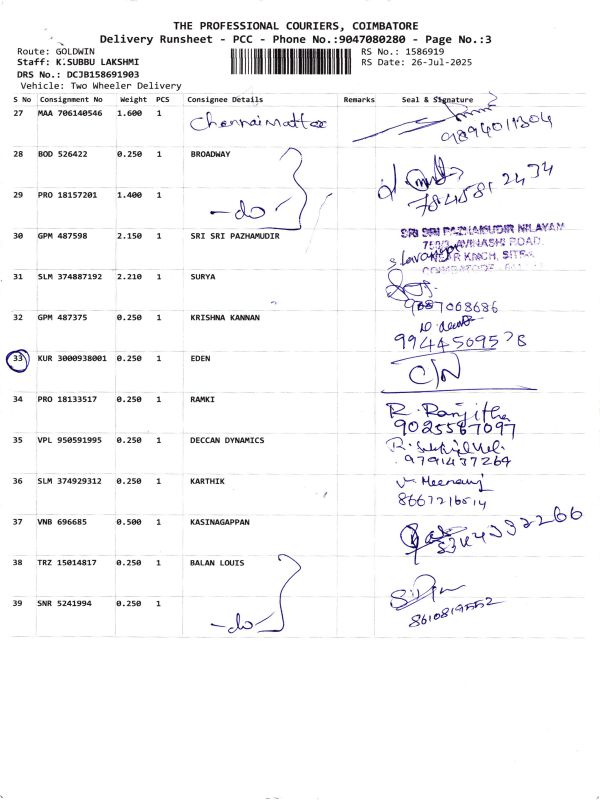 THE PROFESSIONAL COURIERS, COIMBATORE
Delivery Runsheet - PCC - Phone No.:9047080280 - Page No.:3
Route: GOLDWIN
RS No.: 1586919
Staff: K.SUBBU LAKSHMI
RS Date: 26-Jul-2025
DRS No.: DCJB158691903
Vehicle: Two Wheeler Delivery
S No Consignment No Weight PCS Consignee Details Remarks Seal & Signature
27 MAA 706140546 1.600 1
28 BOD 526422 0.250 1 BROADWAY
29 PRO 18157201 1.400 1 -do-
30 GPM 487598 2.150 1 SRI SRI PAZHAMUDIR SRI SRI PAZHAMUDIR NILAYAM
AVINASHI ROAD,
31 SLM 374887192 2.210 1 SURYA
9087008686
32 GPM 487375 0.250 1 KRISHNA KANNAN
9944509578
33 KUR 3000938001 0.250 1 EDEN C/N
34 PRO 18133517 0.250 1 RAMKI R. Ranjitha
9025587097
35 VPL 950591995 0.250 1 DECCAN DYNAMICS
9791437264
36 SLM 374929312 0.250 1 KARTHIK
8667216514
37 VNB 696685 0.500 1 KASINAGAPPAN
38 TRZ 15014817 0.250 1 BALAN LOUIS
39 SNR 5241994 0.250 1 -do-
8610819552